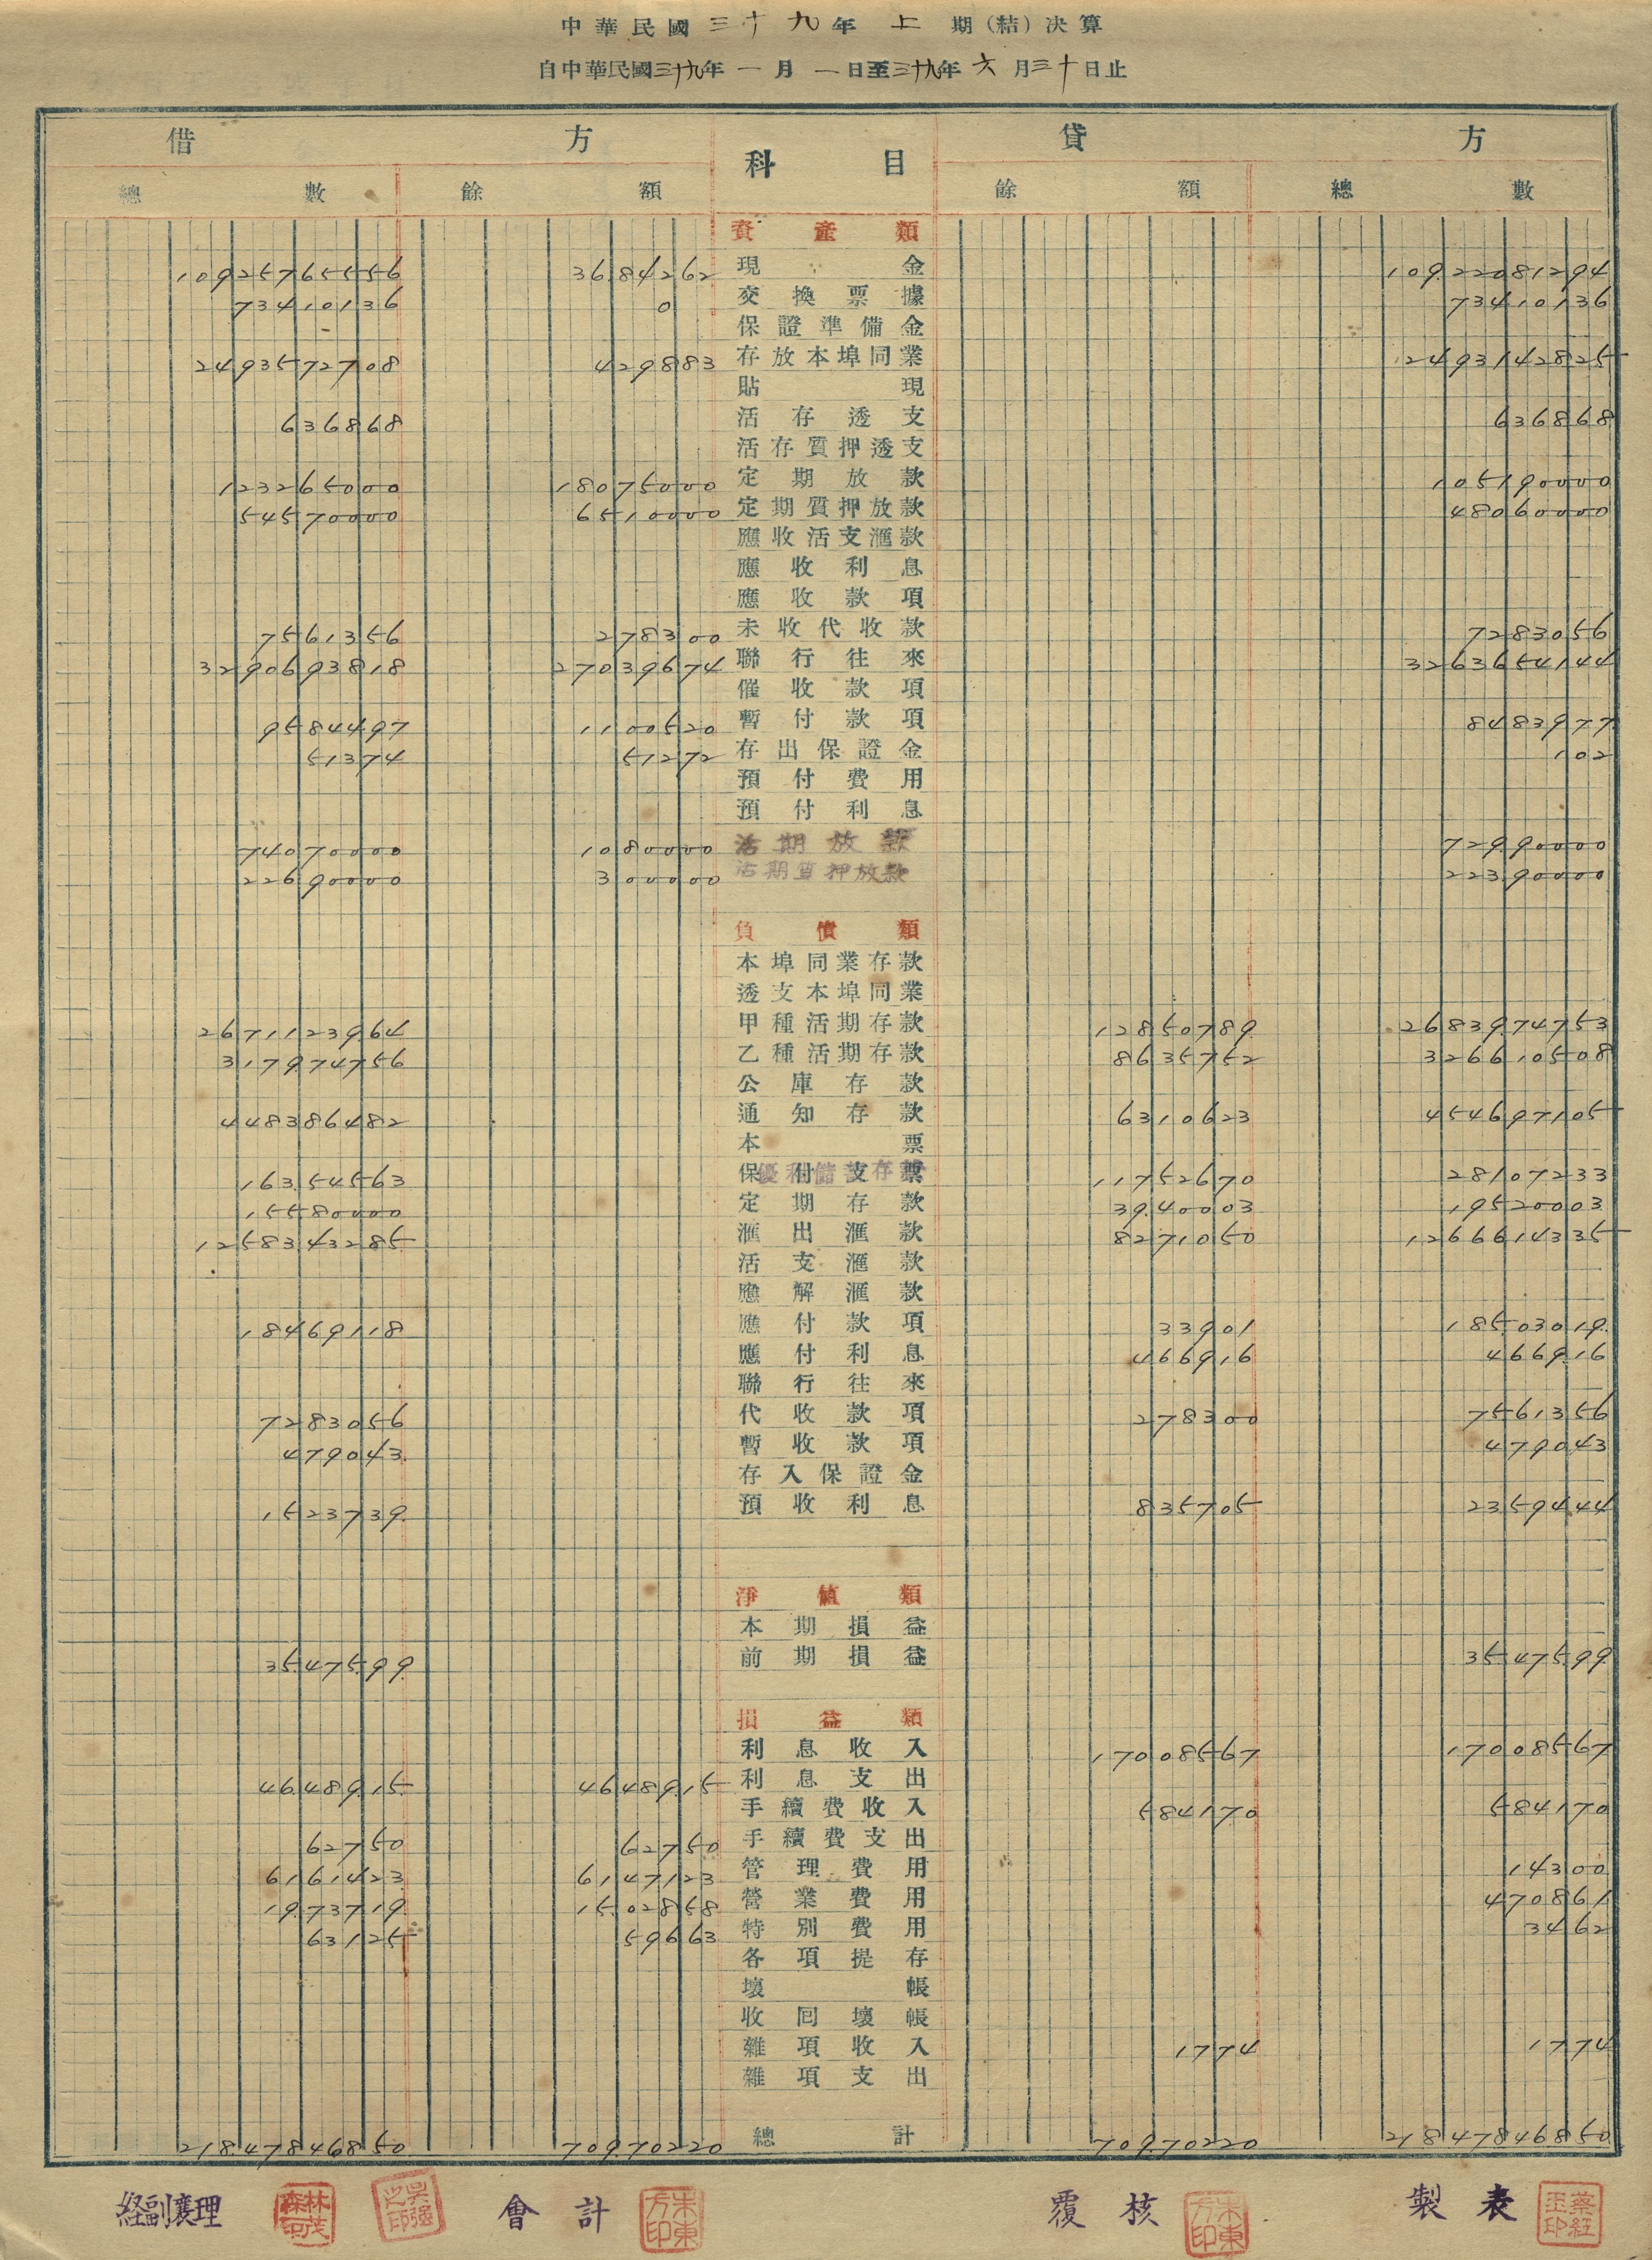 中華民國三十九年 上 期(結)決算
自中華民國三十九年一月一日至三十九年六月三十日止
借 方 科 目 貸 方
總 數 餘 額 餘 額 總 數
資產類
10925765556 3684262 現金 10922081294
73410136 0 交換票據 73410136
- 保證準備金
2493572708 429883 存放本埠同業 2493142825
貼現
636868 活存透支 636868
活存質押透支
123265000 18075000 定期放款 105190000
54570000 6510000 定期質押放款 48060000
應收活支滙款
應收利息
應收款項
7561356 278300 未收代收款 7283056
3290693818 27039674 聯行往來 3263654144
催收款項
9584497 1100520 暫付款項 8483977
51374 51272 存出保證金 102
預付費用
預付利息
74070000 1080000 活期放款 72990000
22690000 300000 活期質押放款 22390000
負債類
本埠同業存款
透支本埠同業
2671123964 甲種活期存款 12850789 2683974753
317974756 乙種活期存款 8635752 326610508
公庫存款
448386482 通知存款 6310623 454697105
本票
16354563 保付支票 優利儲蓄存款 11752670 28107233
15580000 定期存款 3940003 19520003
1258343285 滙出滙款 8271050 1266614335
活支滙款
應解滙款
18469118 應付款項 33901 18503019
應付利息 466916 466916
聯行往來
7283056 代收款項 278300 7561356
479043 暫收款項 479043
存入保證金
1523739 預收利息 835705 2359444
淨值類
本期損益
3547599 前期損益 3547599
損益類
利息收入 17008567 17008567
4648915 4648915 利息支出
手續費收入 584170 584170
62750 62750 手續費支出
6161423 6147123 管理費用 14300
1973719 1502858 營業費用 470861
63125 59663 特別費用 3462
各項提存
壞帳
收回壞帳
雜項收入 1774 1774
雜項支出
21847846850 70970220 總計 70970220 21847846850
経副襄理 林茂森印 吳強之印 會計 朱東方印 覆核 朱東方印 製表 蔡紅玉印